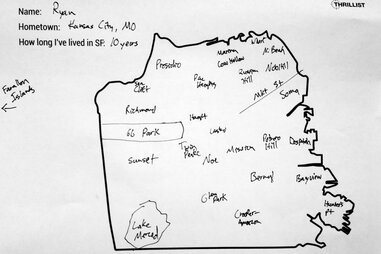 THRILLIST
Name: Ryan
Hometown: Kansas City, MO
How long I've lived in SF: 10 years
Farallon
Islands
Presidio
Marina
Cow Hollow
N. Beach
Pac
Heights
Russian
Hill
Nob Hill
Sea
Cliff
Mkt St
Soma
Richmond
Haight
GG Park
Castro
Sunset
Twin
Peaks
Noe
Mission
Potrero
Hill
Dogpatch
Bernal
Bayview
Glen
Park
Hunters
Pt
Lake
Merced
Crocker
Amazon